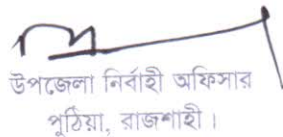 উপজেলা নির্বাহী অফিসার
পুঠিয়া, রাজশাহী।